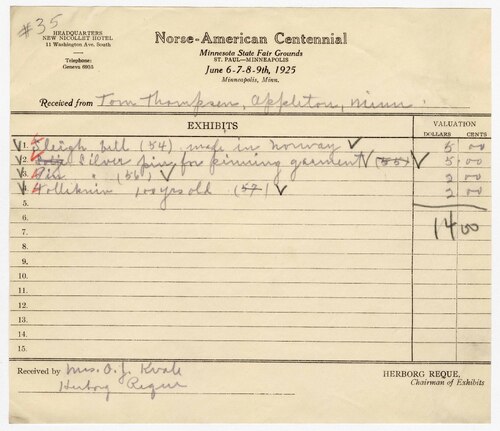 #35
HEADQUARTERS
NEW NICOLLET HOTEL
11 Washington Ave. South
Telephone:
Geneva 6935
Norse-American Centennial
Minnesota State Fair Grounds
ST. PAUL—MINNEAPOLIS
June 6-7-8-9th, 1925
Minneapolis, Minn.
Received from Tom Thompson, Appleton, Minn.
EXHIBITS
VALUATION
DOLLARS CENTS
1. Sleigh bell (54) made in Norway 5 00
2. Silver pin for pinning garment (55) 5 00
3. Pin " (56) 2 00
4. Tollekniv 100 yrs old (57) 2 00
5.
6.
7. 14 00
8.
9.
10.
11.
12.
13.
14.
15.
Received by Mrs. O. J. Kvale
Herborg Reque
HERBORG REQUE,
Chairman of Exhibits